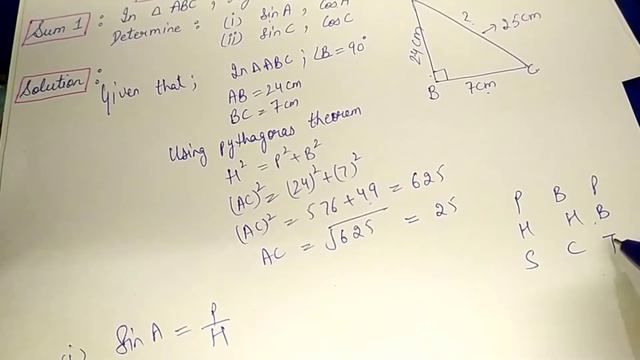 Sum 1 : In △ ABC,
Determine : (i) SinA, CosA
(ii) SinC, CosC
Solution :
Given that; In △ABC; ∠B = 90°
AB = 24cm
BC = 7cm
24cm
2.
25cm
B
7cm
C
Using pythagoras theorem
H² = P² + B²
(AC)² = (24)² + (7)²
(AC)² = 576 + 49 = 625
AC = √625 = 25
P B P
H H B
S C T
(i) SinA = P/H